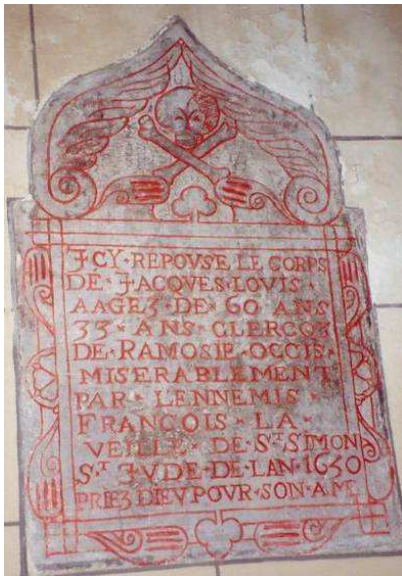 ICY · REPOVSE LE CORPS
DE · JACQVES · LOVIS ·
AAGEZ · DE · 60 ANS
33 · ANS · CLERCQZ
DE · RAMOSIE · OCCIS ·
MISERABLEMENT
PAR · LENNEMIS ·
FRANCOIS · LA ·
VEILLE · DE · S.T SIMON
S.T JVDE · DE · LAN · 1650
PRIEZ DIEV POVR · SON · AME